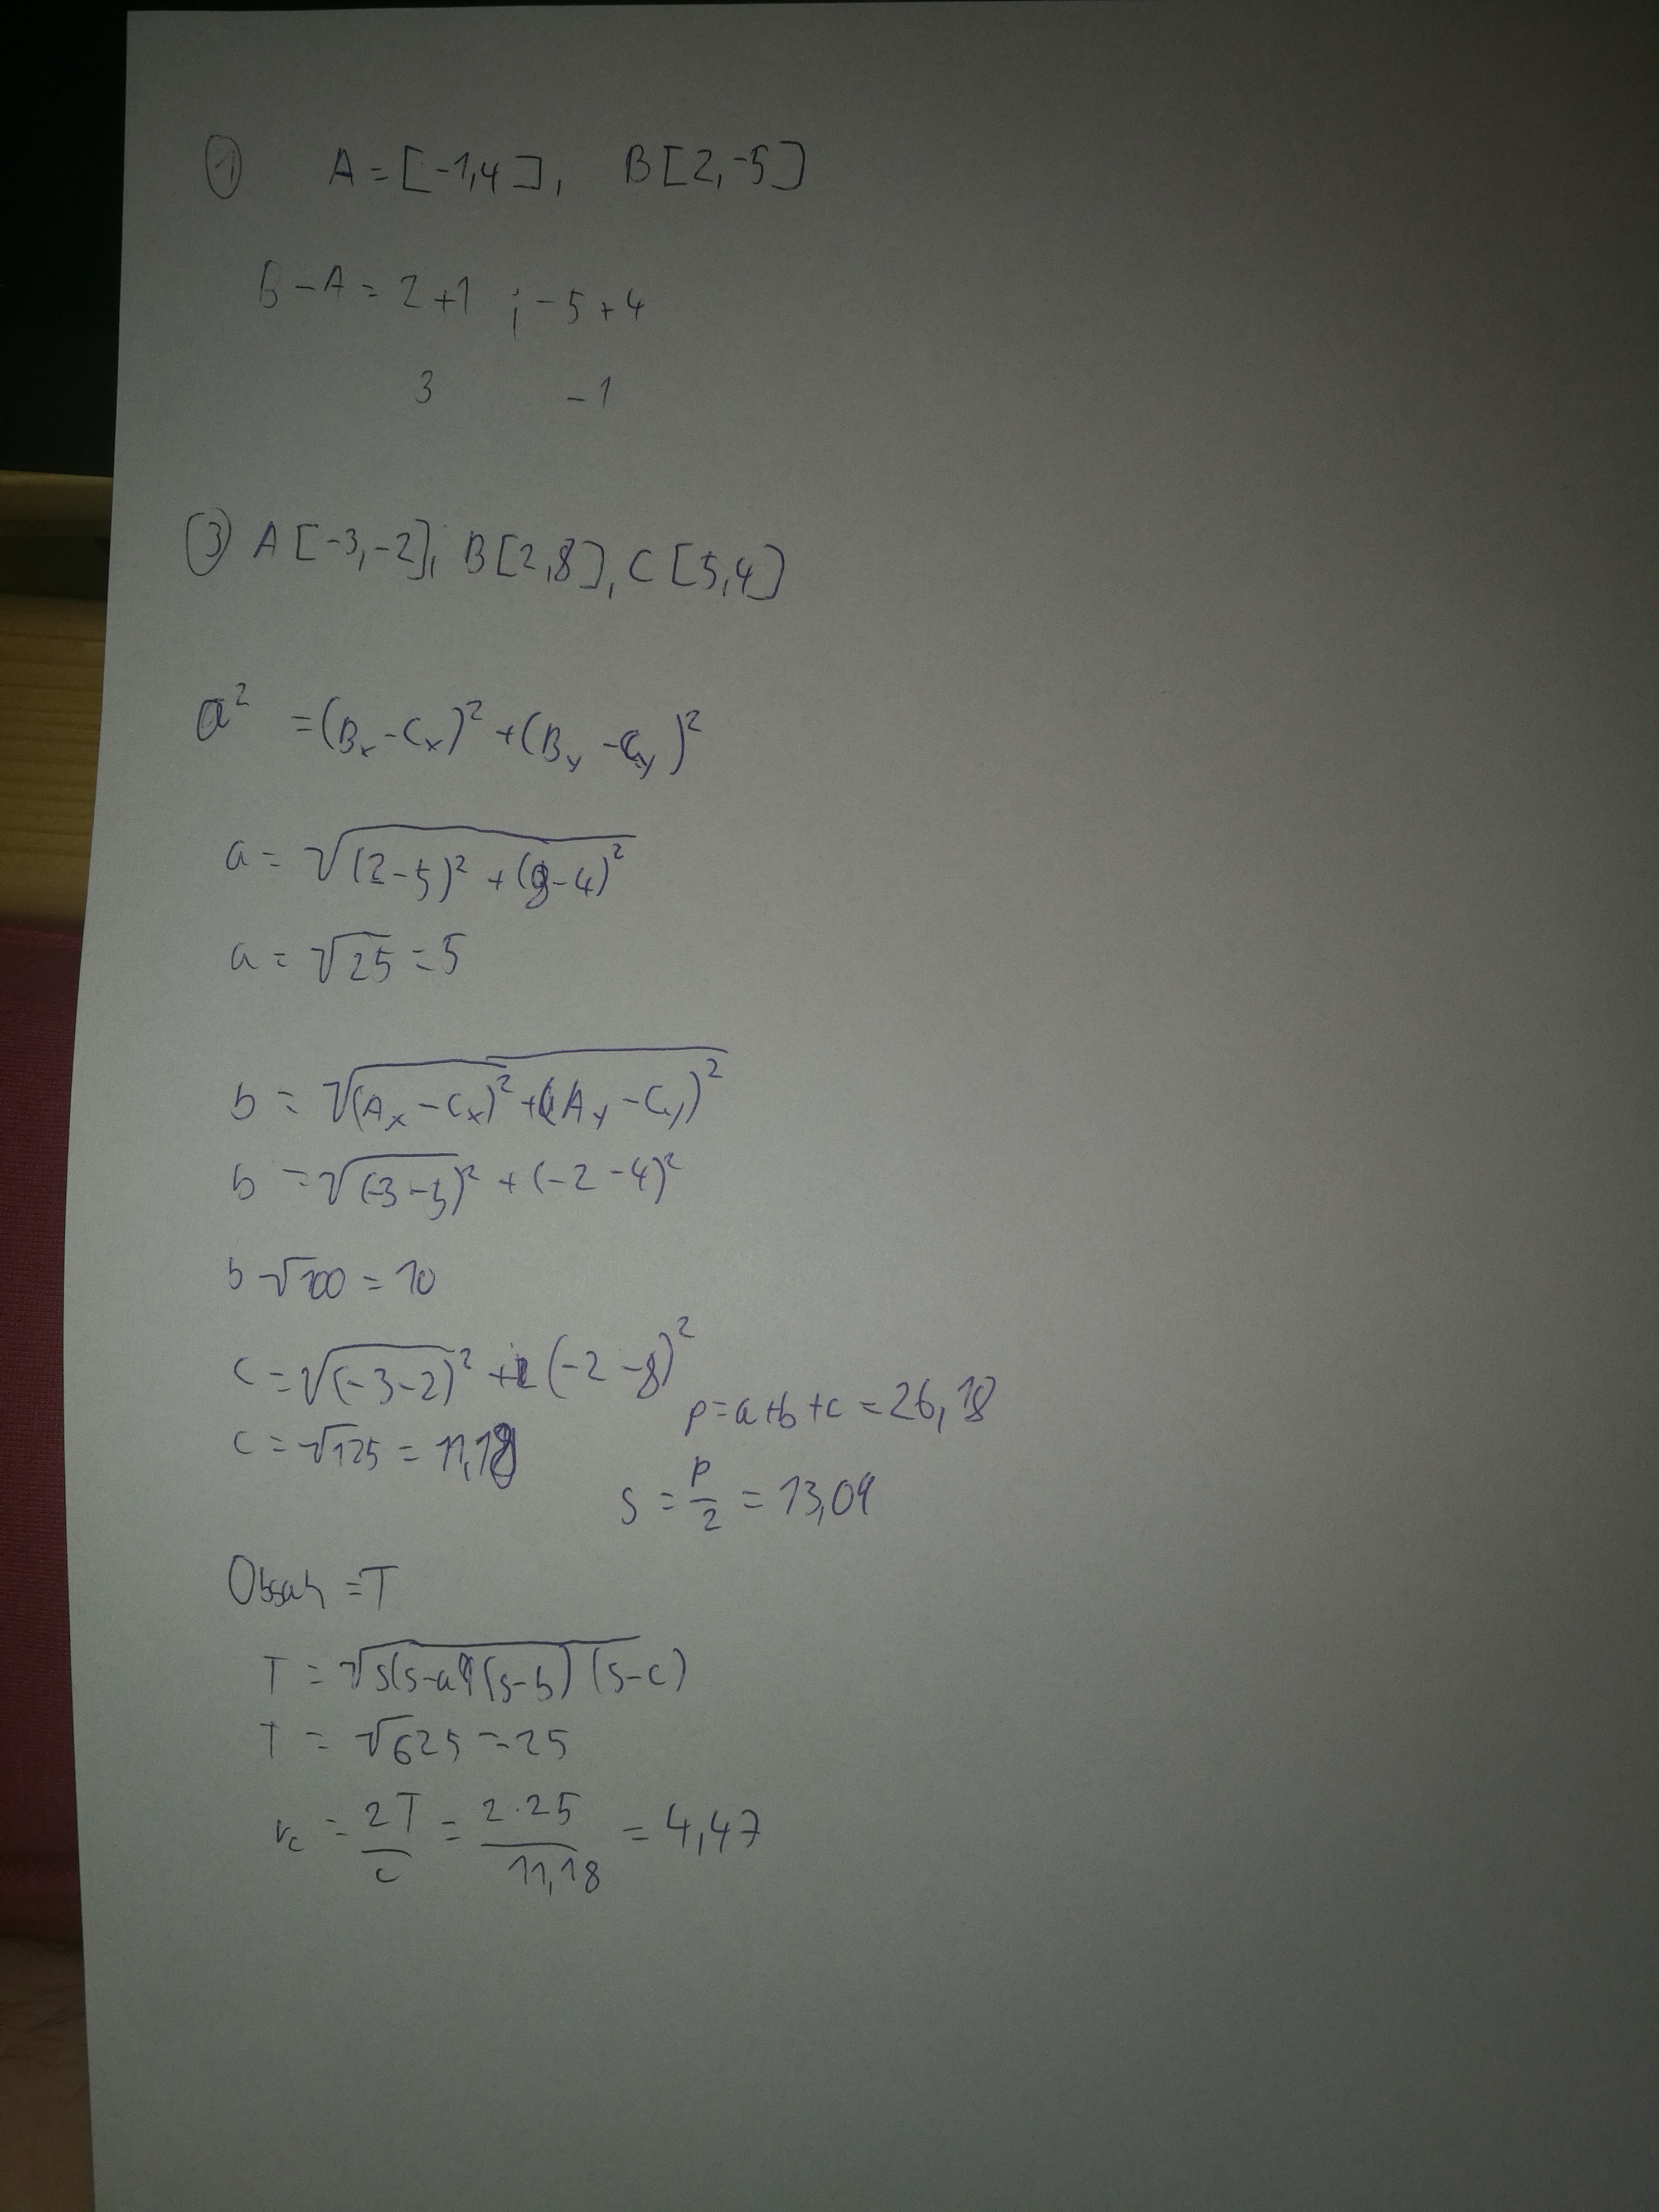 ① A=[-1,4], B[2,-5]
B-A=2+1 ; -5+4
3 -1
③ A[-3,-2], B[2,8], C[5,4]
a² =(Bₓ-Cₓ)²+(Bᵧ-Cᵧ)²
a= √(2-5)²+(8-4)²
a= √25=5
b= √(Aₓ-Cₓ)²+(Aᵧ-Cᵧ)²
b=√(-3-5)²+(-2-4)²
b √100=10
c=√(-3-2)²+(-2-8)²
p=a+b+c=26,18
c=√125=11,18
s=p/2=13,09
Obsah=T
T=√s(s-a)(s-b)(s-c)
T=√625=25
v_c=2T/c=2·25/11,18=4,47